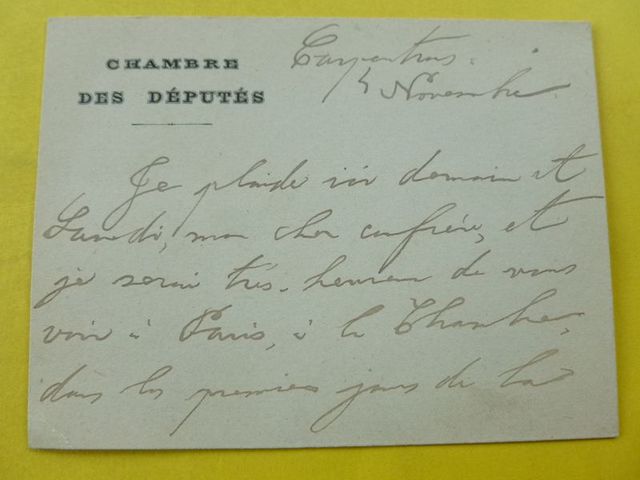 CHAMBRE
DES DÉPUTÉS
Carpentras.
4 Novembre.
Je plaide ici demain et
Lundi, mon cher confrère, et
je serai très-heureux de vous
voir à Paris, à la Chambre,
dans les premiers jours de la